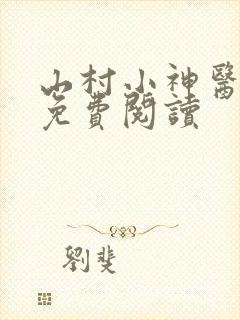 山村小神醫
免費閱讀
劉斐